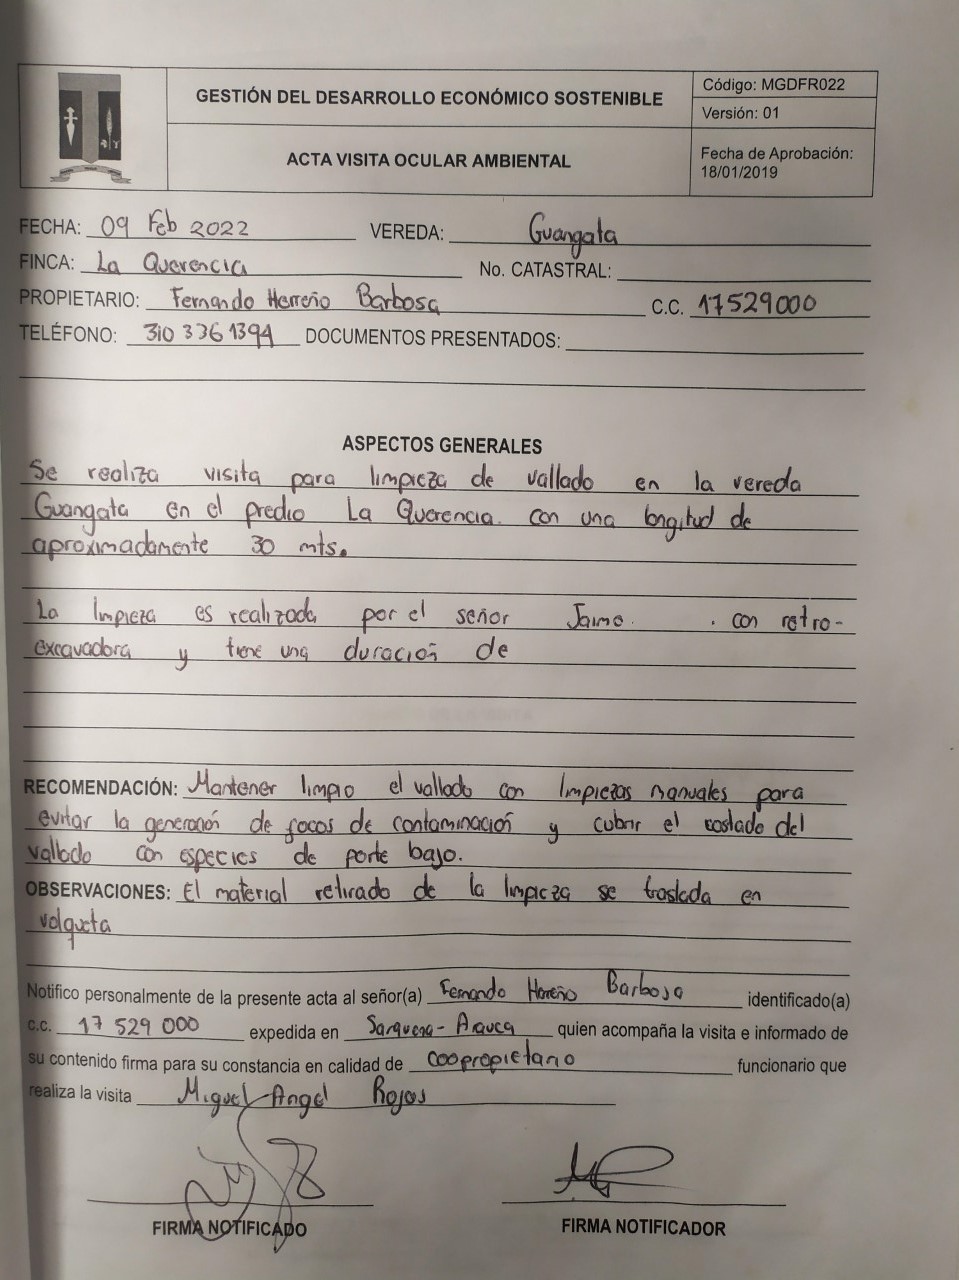 GESTIÓN DEL DESARROLLO ECONÓMICO SOSTENIBLE
Código: MGDFR022
Versión: 01
ACTA VISITA OCULAR AMBIENTAL
Fecha de Aprobación:
18/01/2019
FECHA: 09 Feb 2022 VEREDA: Guangata
FINCA: La Querencia No. CATASTRAL:
PROPIETARIO: Fernando Herreño Barbosa C.C. 17529000
TELÉFONO: 310 336 1394 DOCUMENTOS PRESENTADOS:
ASPECTOS GENERALES
Se realiza visita para limpieza de vallado en la vereda
Guangata en el predio La Querencia. con una longitud de
aproximadamente 30 mts.
La limpieza es realizada por el señor Jaime. . con retro-
excavadora y tiene una duración de
RECOMENDACIÓN: Mantener limpio el vallado con limpiezas manuales para
evitar la generación de focos de contaminación y cubrir el costado del
vallado con especies de porte bajo.
OBSERVACIONES: El material retirado de la limpieza se traslada en
volqueta
Notifico personalmente de la presente acta al señor(a) Fernando Herreño Barbosa identificado(a)
c.c. 17 529 000 expedida en Sarquena - Arauca quien acompaña la visita e informado de
su contenido firma para su constancia en calidad de coopropietario funcionario que
realiza la visita Miguel Angel Rojas
FIRMA NOTIFICADO FIRMA NOTIFICADOR